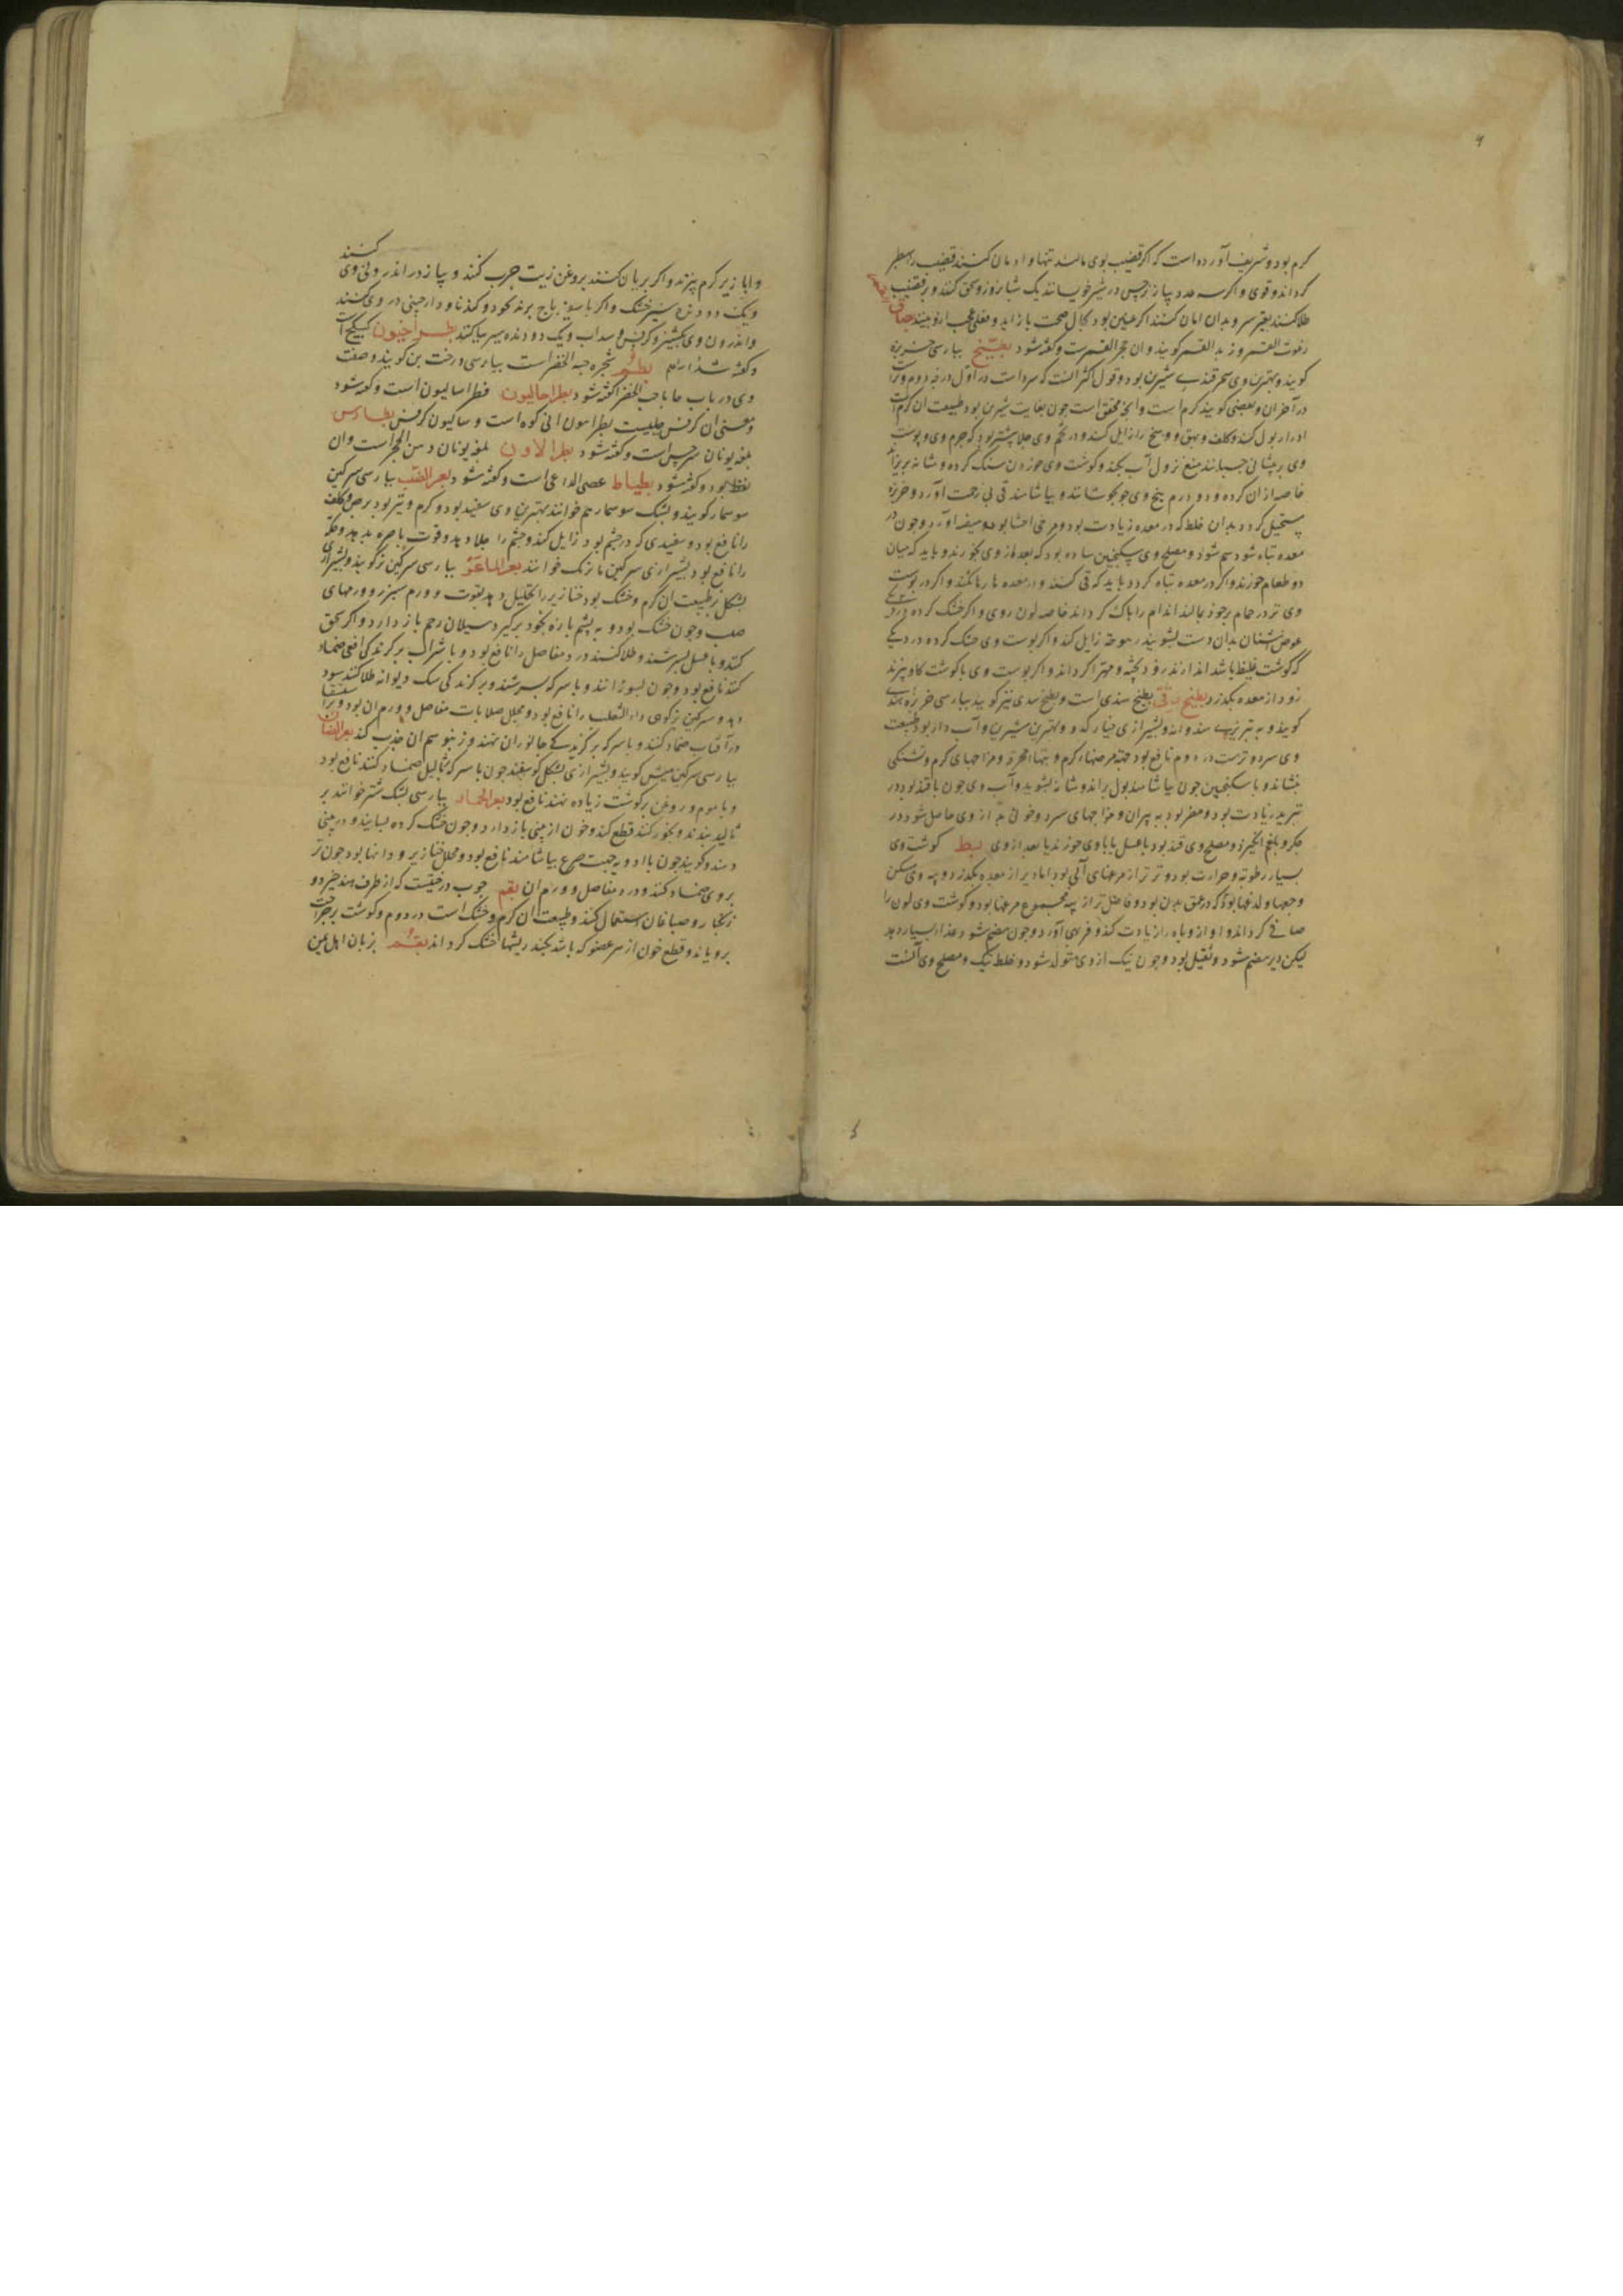 کرم بود و شریف آورده است که اکر قضیب بوی مالند تنها و ادمان کنند قضیب را سطبر
کرداند و قوی و اکر سه عدد پیاز نرجس در شیر خویسانند یک شبانروز و سحق کنند و بر قضیب
طلا کنند بغیر سر و بدان ادمان کنند اکر عنین بود بحال صحت باز اید و فعلی عجب ازو بینند بصاق القمر
رغوت القمر و زبد القمر کویند و ان حجر القمرست و کفته شود بطیخ بپارسی خربزه
کویند و بهترین وی سمرقندی شیرین بود و قول اکثر انست که سرد است در اول درجه دوم و تر است
در آخر ان و بعضی کویند کرم است و انچه محقق است چون بغایت شیرین بود طبیعت ان کرم است
ادرار بول کند و کلف و بهق و وسخ را زایل کند و در تخم وی جلا بیشتر بود که جرم وی و پوست
وی بر پیشانی چسبانند منع نزول آب بکند و کوشت وی خوردن سنک کرده و مثانه بریزاند
خاصه از ان کرده و دو درم بیخ وی چو بجوشانند و بیاشامند قی بی زحمت آورد و خربزه
مستحیل کردد بدان خلط که در معده زیادت بود و مرخی احشا بود و هیضه اورد و چون در
معده تباه شود سم شود و مصلح وی سکنجبین ساده بود که بعد از وی بخورند و باید که میان
دو طعام خورند و اکر در معده تباه کردد باید که قی کنند و در معده رها نکنند و اکر در پوست
وی تر در حمام بر خود بمالند اندام را پاک کرداند خاصه لون روی و اکر خشک کرده
عوض اشنان بدان دست بشویند زهومة زایل کند و اکر پوست وی خشک کرده در دیکی
که کوشت غلیظ باشد اندازند زود پخته و مهرا کرداند و اکر پوست وی با کوشت کاو پزند
زود از معده بکذرد بطیخ رقی بطیخ هندی است و بطیخ سندی نیز کویند بپارسی خربزه هندی
کویند و به تبریزی هندوانه و بشیرازی خیار کدو و بهترین شیرین و آب دار بود طبیعت
وی سرد و ترست در دوم نافع بود جهة مرضهاء کرم و تبهاء محرقه و مزاجهای کرم و تشنکی
بنشاند و با سکنجبین چون بیاشامند بول براند و مثانه بشوید و آب وی چون با قند بود در
تبرید زیادت بود و مضر بود به پیران و مزاجهای سرد و خونی بد از وی حاصل شود در
جکر و بلغم انکیزد و مصلح وی قند بود یا عسل یا با وی خورند یا بعد از وی بط کوشت وی
بسیار رطوبة و حرارت بود و تر تر از مرغهای آبی بود اما دیر از معده بکذرد و پیه وی مسکن
وجعها و لذعها بود که در عمق بدن بود و فاضل تر از پیه مجموع مرغها بود و کوشت وی لون را
صافی کرداند و اواز و باه را زیادت کند و فربهی آورد و چون هضم شود غذا بسیار دهد
لیکن دیر هضم شود و ثقیل بود و چون نیک از وی متولد شود و غلظ نیک و مصلح وی آنست
کنند
و ابازیر کرم پزند و اکر بریان کنند بروغن زیت چرب کنند و پیاز در اندرونی وی
و یک دو دنده سیر خشک و اکر با سویز باج برند نخود و کندنا و دارچینی در وی کنند
و اندرون وی بکشنیز و کرفس و سداب و یک دو دنده سیر بیاکنند بطراخیون کبیکج است
و کفته شد بطم شجره حبه الخضرا است بپارسی درخت بن کویند و صفت
وی در باب حا با حب الخضرا کفته شود بطراسالیون فطراسالیون است و کفته شود
و معنی ان کرفس جبلیست بطراسون انی کوه است و سالیون کرفس بطارس
بلغه یونان سرخس است و کفته شود بطرالاون بلغه یونان دهن الحجر است وان
نفط بود و کفته شود بطباط عصی الراعی است و کفته شود بعر الضب بپارسی سرکین
سوسمار کویند و پشک سوسمار هم خوانند بهترین وی سفید بود و کرم و تیز بود برص و کلف
را نافع بود و سفیدی که در چشم بود زایل کند و چشم را جلا دهد و قوت باصره بدهد و حکه
را نافع بود بشیرازی سرکین مازنک خوانند بعر الماعز بپارسی سرکین بز کویند و بشیرازی
پشکل بز طبیعت ان کرم و خشک بود خنازیر را تحلیل دهد بقوت و ورم سپرز و ورمهای
صلب و چون خشک بود و به پشم پاره بخود برکیرد سیلان رحم باز دارد و اکر سحق
کنند و با عسل بسرشند و طلا کنند درد مفاصل را نافع بود و با شراب بر کزندکی افعی ضماد
کنند نافع بود و چون بسوزانند و با سرکه بسرشند و بر کزندکی سک دیوانه طلا کنند سود
دهد و سرکین بز کوهی داء الثعلب را نافع بود و محلل صلابات مفاصل و ورم ان بود و بر استسقا
در آفتاب ضماد کنند و با سرکه بر کزندکی جانوران نهند و زنبور سم ان جذب کند بعر الضان
بپارسی سرکین میش کویند و بشیرازی پشکل کوسفند چون با سرکه بر ثالیل ضماد کنند نافع بود
و با موم و روغن بر کوشت زیاده نهند نافع بود بعر الجمال بپارسی پشک شتر خوانند بر
ثالیل بندند و بخور کنند قطع کند و خون از بینی باز دارد و چون خشک کرده بسایند و در بینی
دمند و کویند چون با ادویه جهت صرع بیاشامند نافع بود و محلل خنازیر و دانها بود چون تر
بر وی ضماد کنند و درد مفاصل و ورم ان بقم چوب درختیست که از طرف هند خیزد و
زنکبار و صباغان استعمال کنند و طبیعت ان کرم و خشک است در دوم و کوشت بر جراحت
برویاند و قطع خون از هر عضو که باشد بکند ریشها خشک کرداند بقم بزبان اهل یمن